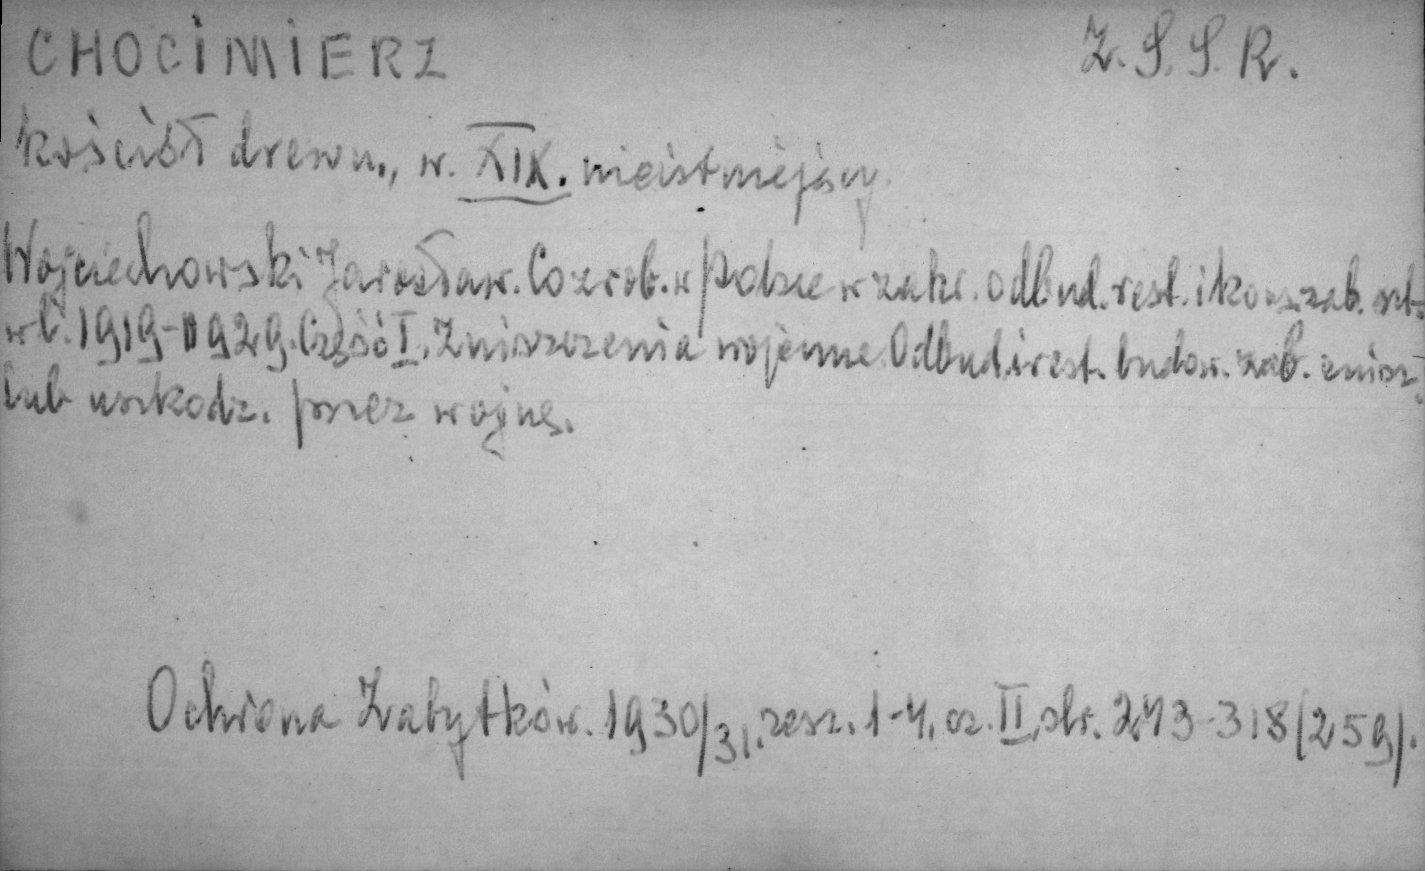 CHOCIMIERZ Z.S.S.R.
kościół drewn., w. XIX. nieistniejący
Wojciechowski Jarosław. Co zrob. w Polsce w zakr. odbud. rest. i kons. zab. szt.
w l. 1919-1929. Część I. Zniszczenia wojenne. Odbud. i rest. budow. zab. zniszcz.
lub uszkodz. przez wojnę.
Ochrona Zabytków. 1930/31. zesz. 1-4. cz. II, str. 243-318 (259).